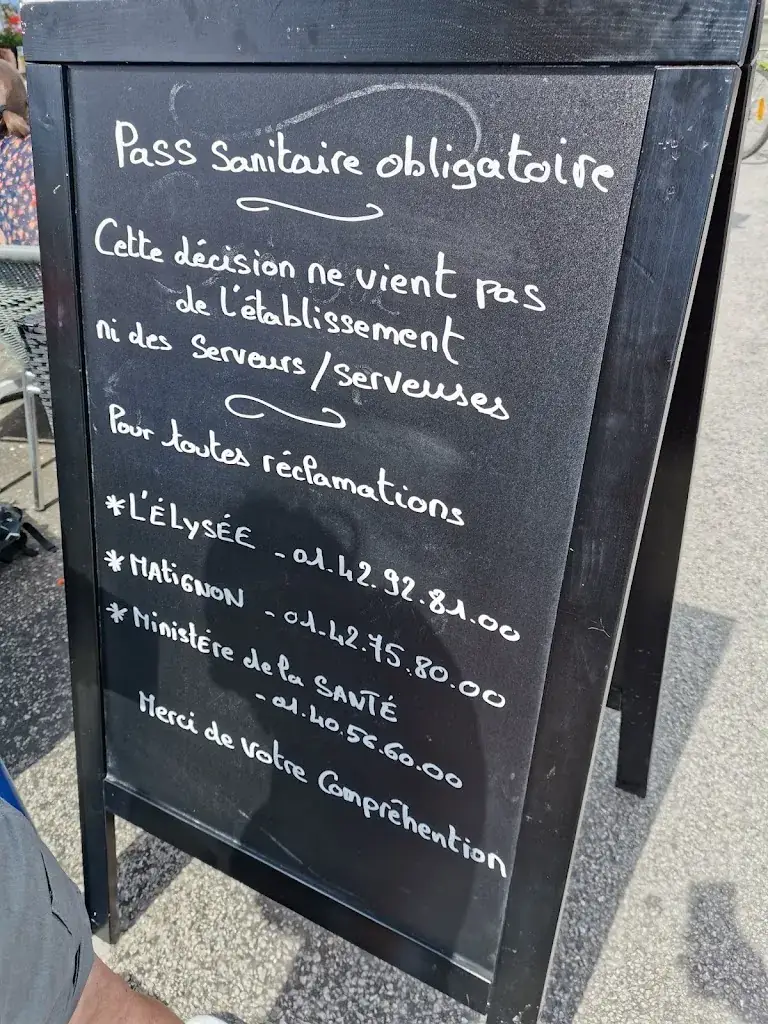 Pass sanitaire obligatoire
Cette décision ne vient pas
de l'établissement
ni des serveurs/serveuses
Pour toutes réclamations
*L'ÉLYSÉE - 01.42.92.81.00
*MATIGNON - 01.42.75.80.00
*Ministère de la SANTÉ
- 01.40.56.60.00
Merci de votre Compréhention